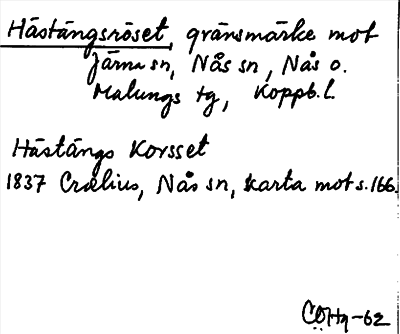 Hästängsröset, gränsmärke mot
Järna sn, Nås sn, Nås o.
Malungs tg, Koppb. l.
Hästängs Korsset
1837 Crælius, Nås sn, karta mot s. 166.
CÖHq-62